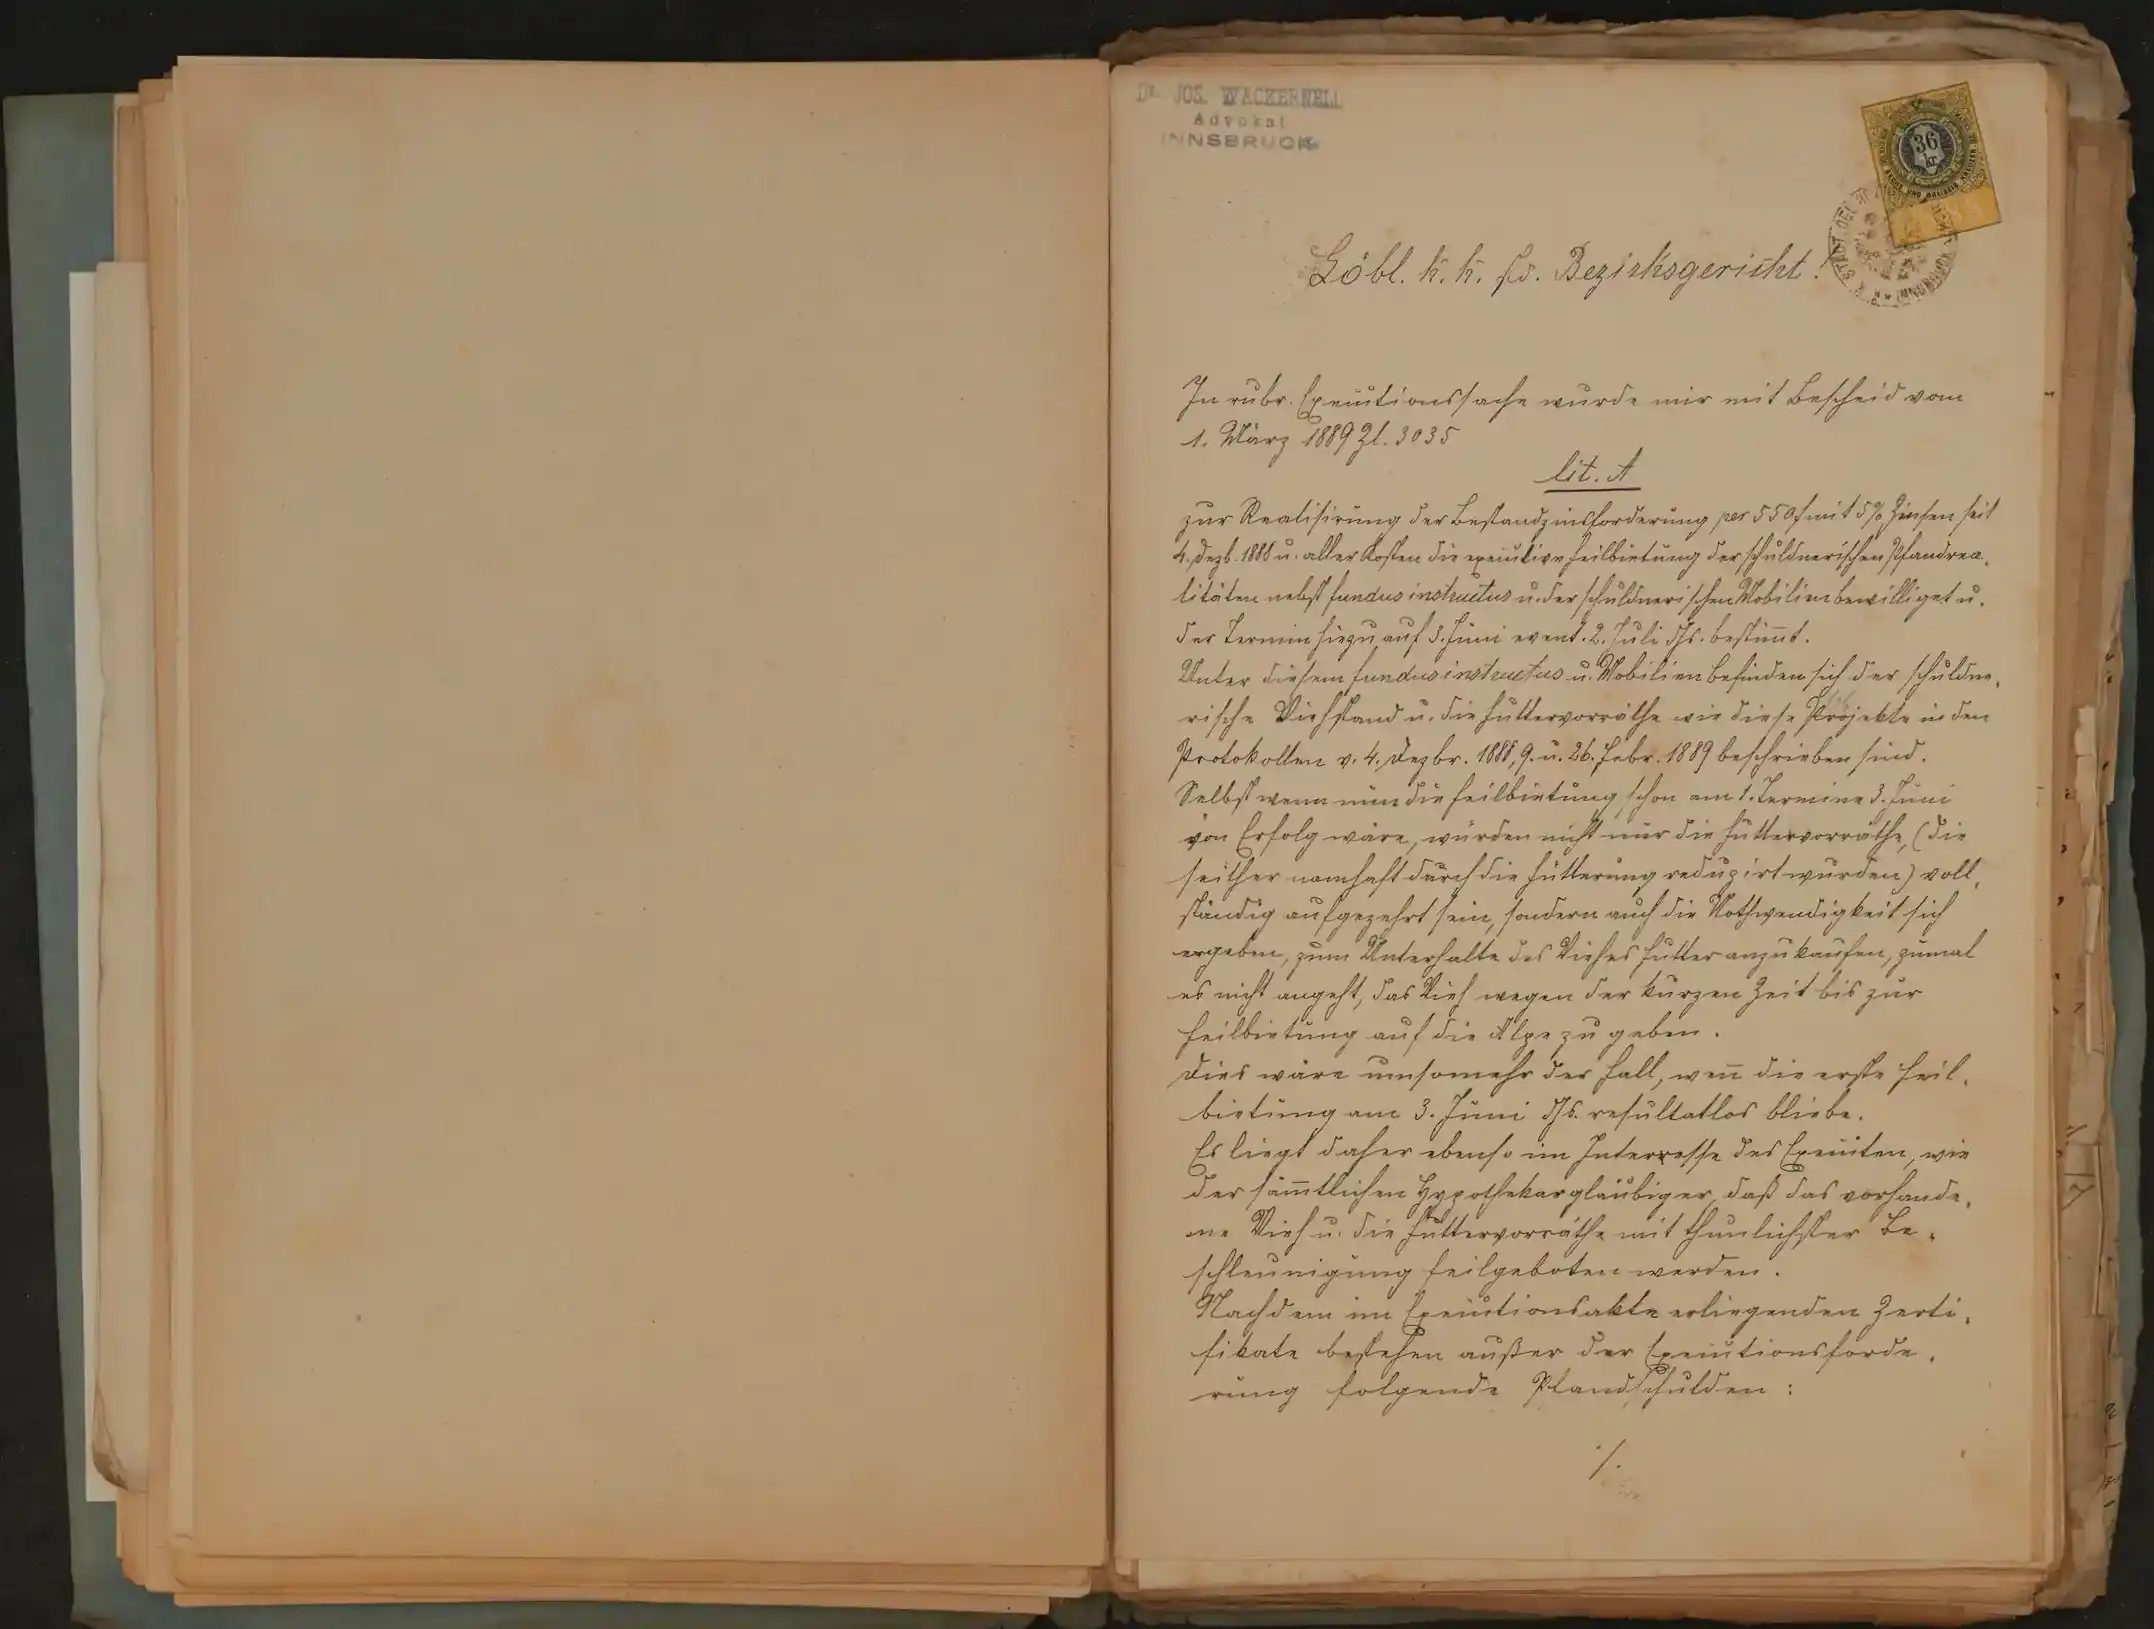 Dr. JOS. WACKERNELL
Advokat
INNSBRUCK
36
kr.
Löbl. k. k. sd. Bezirksgericht!
In rubr. Execütionssache wurde mir mit Bescheid vom
1. März 1889 Zl. 3035
lit. A
zur Realisirung der Bestandzinsforderung per 550 f mit 5% Zinsen seit
4. Dezb. 1888 u. aller Kosten die execütive Feilbietung der schuldnerischen Pfandrea-
litäten nebst fundus instructus u. der schuldnerischen Mobilien bewilliget u.
der Termin hiezu auf 3. Juni event. 2. Juli ds. bestim̄t.
Unter diesem fundus instructus u. Mobilien befinden sich der schuldne-
rische Viehstand u. die Futtervorräthe wie diese Projekte in den
Protokollen v. 4. Dezbr. 1888, 9. u. 26. Febr. 1889 beschrieben sind.
Selbst wenn nun die Feilbietung schon am 1. Termine 3. Juni
von Erfolg wäre, würden nicht nur die Futtervorräthe, (die
seither namhaft durch die Fütterung reduzirt wurden) voll-
ständig aufgezehrt sein, sondern auch die Nothwendigkeit sich
ergeben, zum Unterhalte des Viehes Futter anzukaufen, zumal
es nicht angeht, das Vieh wegen der kurzen Zeit bis zur
Feilbietung auf die Alpe zu geben.
Dies wäre umsomehr der Fall, wen̄ die erste Feil-
bietung am 3. Juni ds. resultatlos bliebe.
Es liegt daher ebenso im Interresse des Execüten, wie
der säm̄tlichen Hypothekargläubiger, daß das vorhande-
ne Vieh u. die Futtervorräthe mit thunlichster Be-
schleunigung feilgeboten werden.
Nach dem im Execütionsakte erliegenden Zerti-
fikate bestehen außer der Execütionsforde-
rung folgende Pfandschulden:
./.